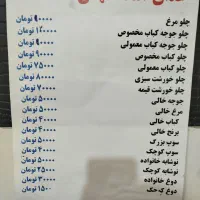 چلو مرغ ۹۰۰۰۰ تومان
چلو جوجه کباب مخصوص تومان
چلو جوجه کباب معمولی تومان
چلو کباب مخصوص ۹۰۰۰۰ تومان
چلو کباب معمولی ۷۵۰۰۰ تومان
چلو خورشت سبزی ۸۰۰۰۰ تومان
چلو خورشت قیمه ۷۰۰۰۰ تومان
جوجه خالی ۵۰۰۰۰ تومان
مرغ خالی ۵۰۰۰۰ تومان
کباب خالی ۴۰۰۰۰ تومان
برنج خالی ۴۰۰۰۰ تومان
سوپ بزرگ تومان
سوپ کوچک تومان
نوشابه خانواده تومان
نوشابه کوچک ۲۵۰۰۰ تومان
دوغ خانواده ۳۰۰۰۰ تومان
دوغ کوچک ۱۵۰۰ تومان